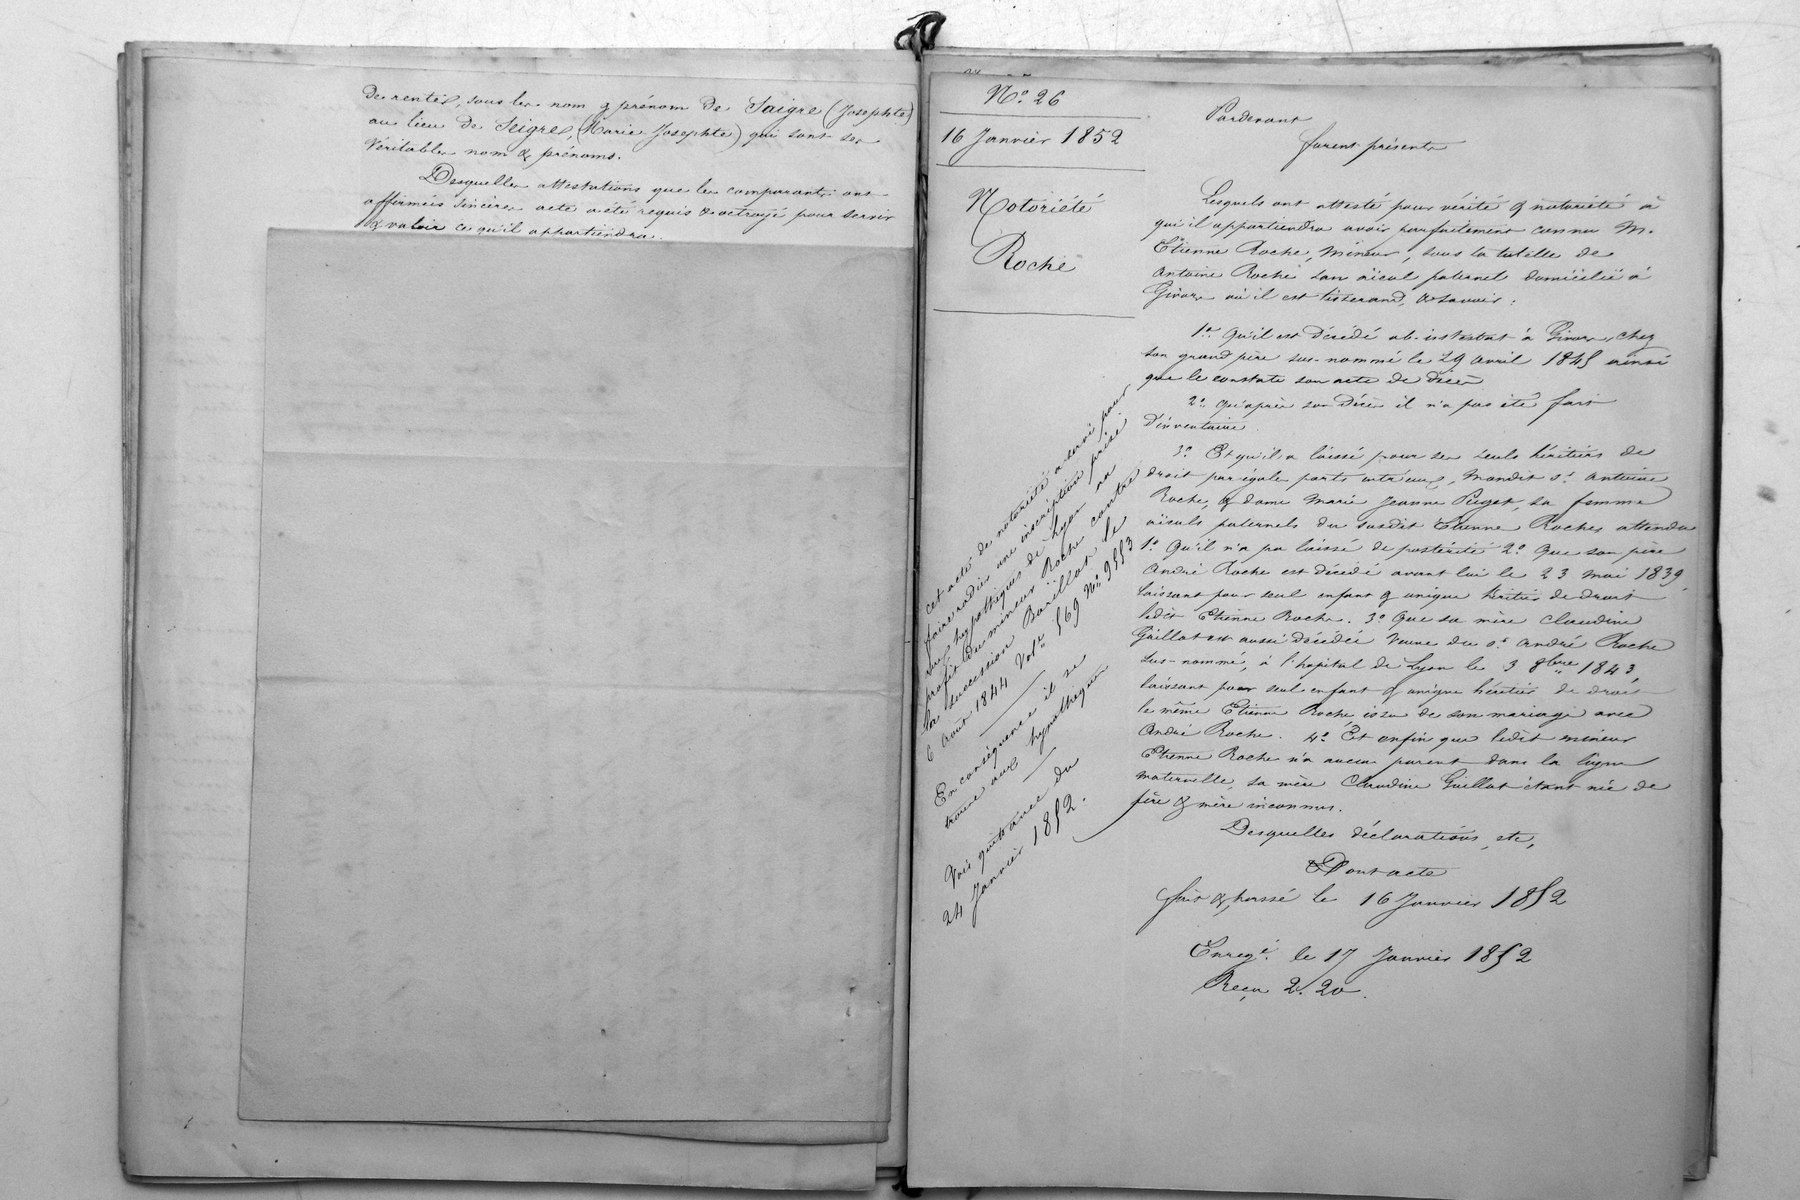 de rentes, sous les nom & prénom de Saigre (Josephte)
au lieu de Seigre, (Marie Josephte) qui sont ses
véritables nom & prénoms.
Desquelles attestations que les comparants ont
affirmées sincères acte a été requis & octroyé pour servir
& valoir ce qu'il appartiendra.
N.o 26
16 Janvier 1852
Notoriété
Roche
Pardevant
furent présents
Lesquels ont attesté pour vérité & notoriété à
qui il appartiendra avoir parfaitement connu M.
Etienne Roche, mineur, sous la tutelle de
Antoine Roche son aïeul paternel domicilié à
Givors où il est tisserand, & savoir :
1.o Qu'il est décédé ab-intestat à Givors, chez
son grand père sus-nommé le 29 avril 1845 ainsi
que le constate son acte de décès
2.o Qu'après son décès il n'a pas été fait
d'inventaire.
3.o Et qu'il a laissé pour ses seuls héritiers de
droit par égales parts entr'eux, mondit s.r Antoine
Roche, & dame Marie Jeanne Puget, sa femme
aïeuls paternels du susdit Etienne Roche, attendu
1.o Qu'il n'a pas laissé de postérité 2.o Que son père
André Roche est décédé avant lui le 23 mai 1839,
laissant pour seul enfant & unique héritier de droit
ledit Etienne Roche. 3.o Que sa mère Claudine
Guillot est aussi décédée veuve du s.r André Roche
sus-nommé, à l'hopital de Lyon le 3 8bre 1843,
laissant pour seul enfant & unique héritier de droit
le même Etienne Roche, issu de son mariage avec
André Roche. 4.o Et enfin que ledit mineur
Etienne Roche n'a aucun parent dans la ligne
maternelle, sa mère Claudine Guillot étant née de
père & mère inconnus.
Desquelles déclarations, etc,
Dont acte
fait & passé le 16 Janvier 1852
Enreg.é le 17 Janvier 1852
Reçu 2. 20.
cet acte de notoriété a servi pour
faire radier une inscription prise
aux hypothèques de Lyon au
profit du mineur Roche contre
la succession Barillot le
6 Août 1844 Vol.e 569 N.o 9553
En conséquence il se
trouve aux hypothèques
Voir quittance du
24 Janvier 1852.